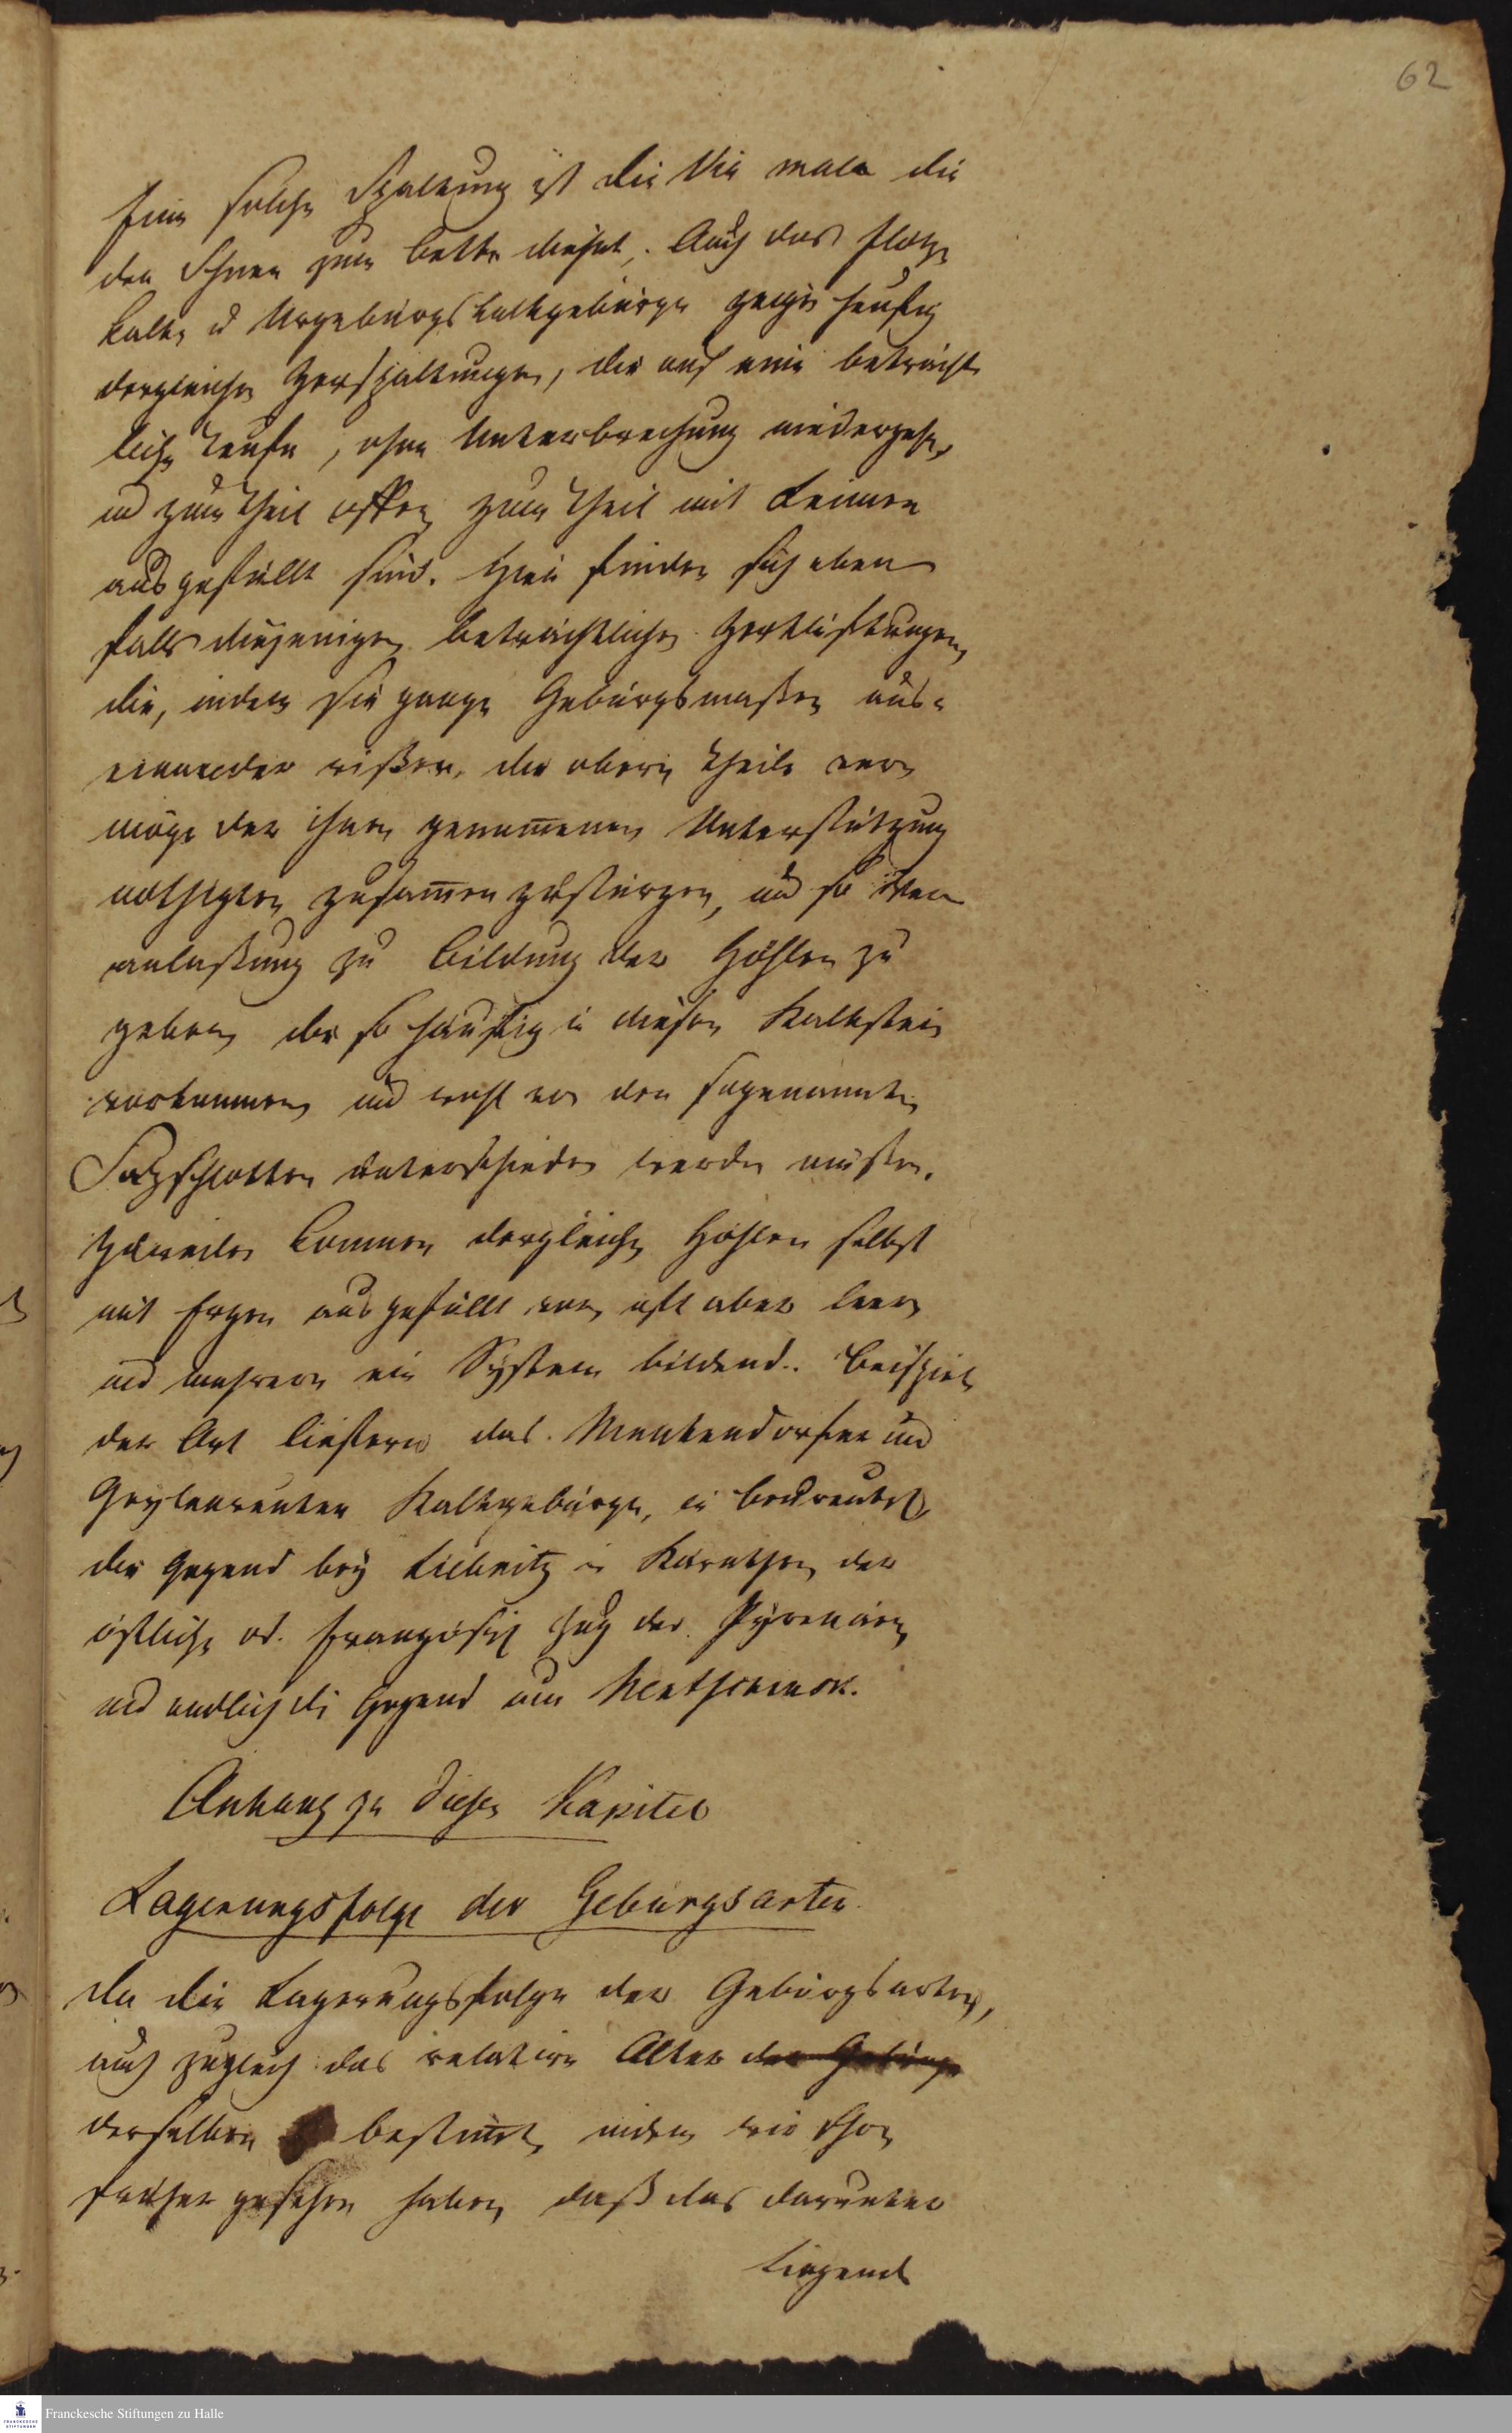 62
Eine solche Spaltung ist die Via mala die
den Rhein zum Bette dienet. Auch das Flötz
kalk u Urgebürgskalkgebürge zeigen häufig
dergleichen Zerspaltungen, die auf eine beträcht
liche Teufe, ohne Unterbrechung niedergehen,
und zum Theil offen zum Theil mit Leimen
ausgefüllt sind. Hier finden sich eben
falls diejenigen beträchtlichen Zerklüftungen,
die, indem sie ganze Gebürgsmaßen aus-
einander rißen, die obern Theile ver
möge der ihnen genom̅enen Unterstützung
nöthigten zusam̅en zu stürzen, und so Ver
anlaßung zu Bildung der Höhlen zu
geben die so häufig in diesen Kalkstein
vorkommen und wohl von den sogenannten
Schlotten unterschieden werden müßen.
Zuweilen kommen dergleichen Höhlen selbst
mit Erzen ausgefüllt vor, oft aber leer
und mehrere ein System bildend. Beispiele
der Art liefern das Muckendorfer und
Geylenreuter Kalkgebürge, in Bayreuth,
die Gegend bey in Kärnthen, der
östliche od. französische Zug der Pyrenäen
und endlich die Gegend um
Anhang zu diesen Kapitel
Lagerungsfolge der Gebürgsarten.
Da die Lagerungsfolge der Gebürgsarten,
auch zugleich das relative Alter der Gebürge
derselben bestim̅t, indem wir schon
früher gesehen haben, daß das darunter
liegende
Franckesche Stiftungen zu Halle